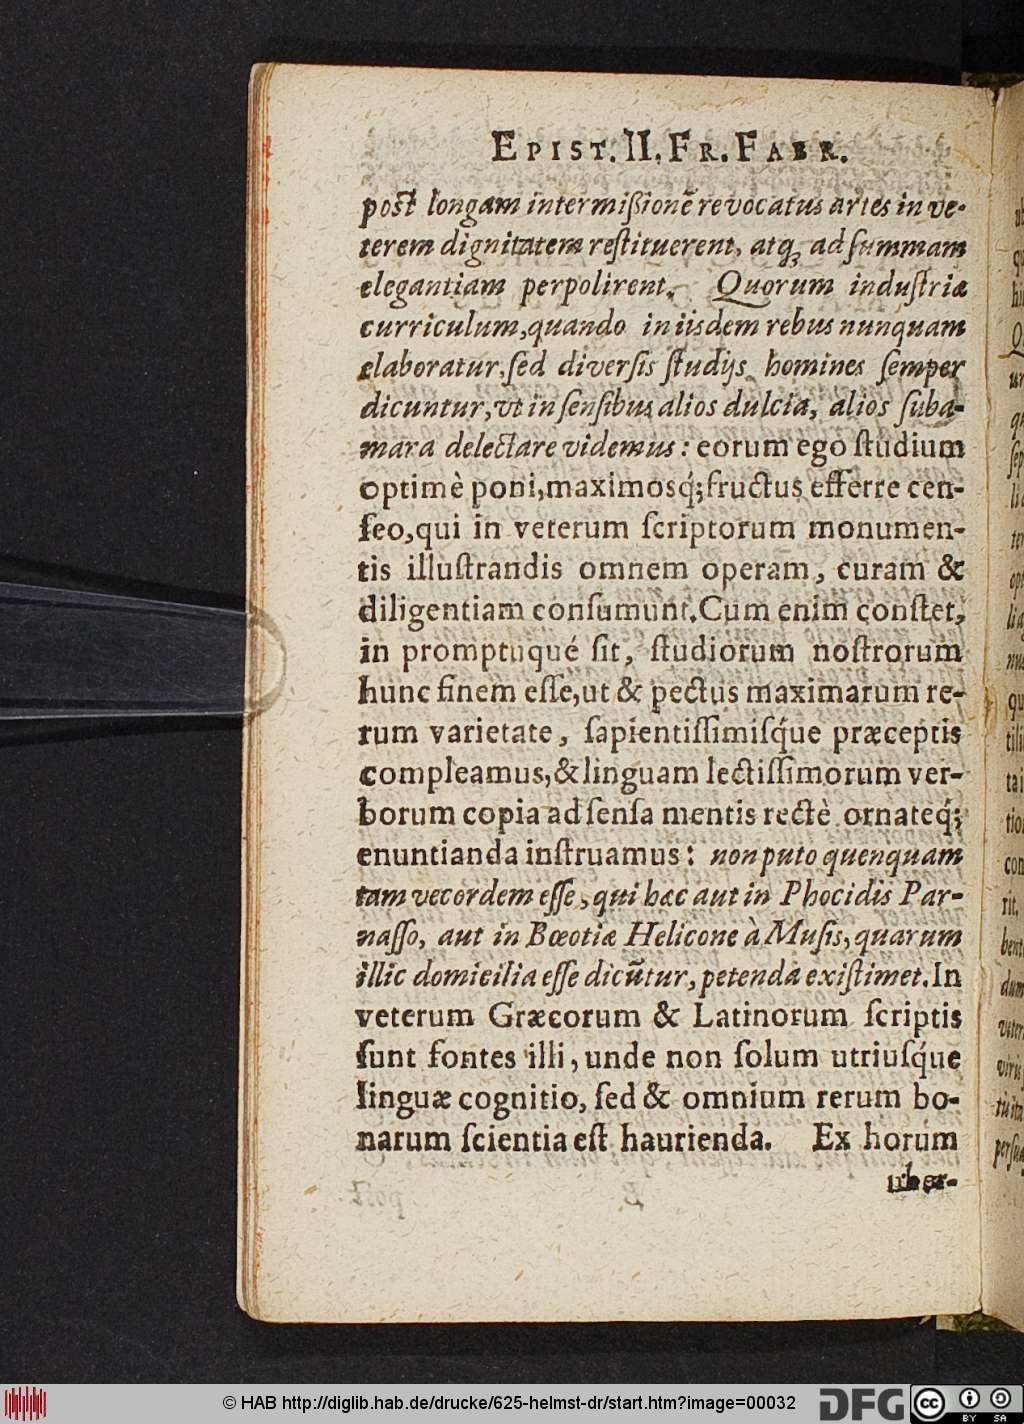 EPIST. II. FR. FABR.
post longam intermißionē revocatus artes in ve-
terem dignitatem reſtituerent, atq́; ad ſummam
elegantiam perpolirent. Quorum induſtriæ
curriculum, quando in iisdem rebus nunquam
elaboratur, ſed diverſis ſtudijs homines ſemper
dicuntur, vt in ſenſibus alios dulcia, alios ſuba-
mara delectare videmus: eorum ego ſtudium
optimè poni, maximosq́; fructus efferre cen-
ſeo, qui in veterum ſcriptorum monumen-
tis illuſtrandis omnem operam, curam &
diligentiam conſumunt. Cum enim conſtet,
in promptuqué ſit, ſtudiorum noſtrorum
hunc finem eſſe, ut & pectus maximarum re-
rum varietate, ſapientiſſimiſq́ue præceptis
compleamus, & linguam lectiſſimorum ver-
borum copia ad ſenſa mentis rectè ornateq́;
enuntianda inſtruamus: non puto quenquam
tam vecordem eſſe, qui hæc aut in Phocidis Par-
naſſo, aut in Bœotiæ Helicone à Muſis, quarum
illic domicilia eſſe dicūtur, petenda exiſtimet. In
veterum Græcorum & Latinorum ſcriptis
ſunt fontes illi, unde non ſolum utriuſq́ue
linguæ cognitio, ſed & omnium rerum bo-
narum ſcientia eſt haurienda. Ex horum
uber-
© HAB http://diglib.hab.de/drucke/625-helmst-dr/start.htm?image=00032
DFG
CC BY SA